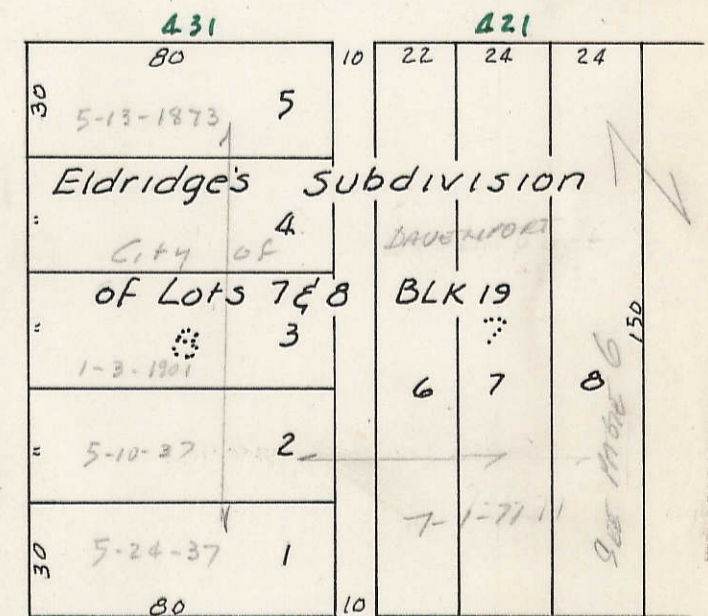 431 421
80 10 22 24 24
30 5-13-1873 5
Eldridge's Subdivision
" 4
City of DAVENPORT
of Lots 7 & 8 BLK 19
" 8 3 7 150
1-3-1901
6 7 8
" 5-10-37 2
SEE PAGE 6
30 5-24-37 1
80 10